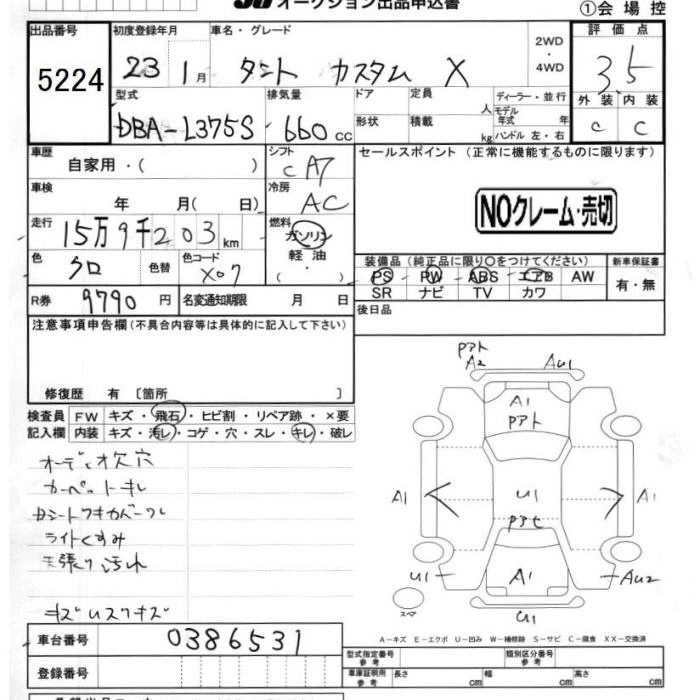 オークション出品申込書
①会場控
出品番号
5224
初度登録年月
23 1月
車名・グレード
タント カスタム X
2WD
・
4WD
評価点
3.5
外装 内装
C C
型式
DBA-L375S
排気量
660 cc
ドア
形状
定員 人
積載 kg
ディーラー・並行
モデル
年式 年
ハンドル 左・右
車歴
自家用・( )
シフト
CA7
車検
年 月( 日)
冷房
AC
走行
15万9千203km
燃料
ガソリン
・
軽油
・
( )
色
クロ
色替
色コード
X07
R券
9790円
名変通知期限 月 日
セールスポイント (正常に機能するものに限ります)
NOクレーム・売切
装備品(純正品に限り〇をつけてください)
PS PW ABS エアB AW
SR ナビ TV カワ
新車保証書
有・無
後日品
注意事項申告欄(不具合内容等は具体的に記入して下さい)
修復歴 有 〔箇所 〕
検査員
記入欄
FW キズ・飛石・ヒビ割・リペア跡・×要
内装 キズ・汚レ・コゲ・穴・スレ・キレ・破レ
オーディオ欠穴
カーペットキレ
ライトくすみ
天張り汚れ
Pアト
A2 AU1
A1
Pアト
A1 U1 A1
A1
U1 AU2
U1
スペア
A-キズ E-エクボ U-凹み W-補修跡 S-サビ C-腐食 XX-交換済
車台番号
0386531
登録番号
型式指定番号
参考
類別区分番号
参考
車庫証明用
参考
長さ cm 幅 cm 高さ cm